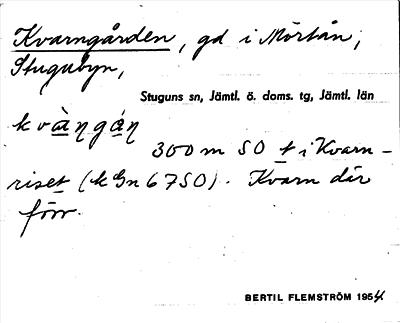 Kvarngården, gd i Mörtån,
Stugubyn,
Stuguns sn, Jämtl. ö. doms. tg, Jämtl. län
kvàŋgá̱ŋ
300 m SO t i Kvarn-
riset (k Gn 67SO). Kvarn där
förr.
BERTIL FLEMSTRÖM 1954